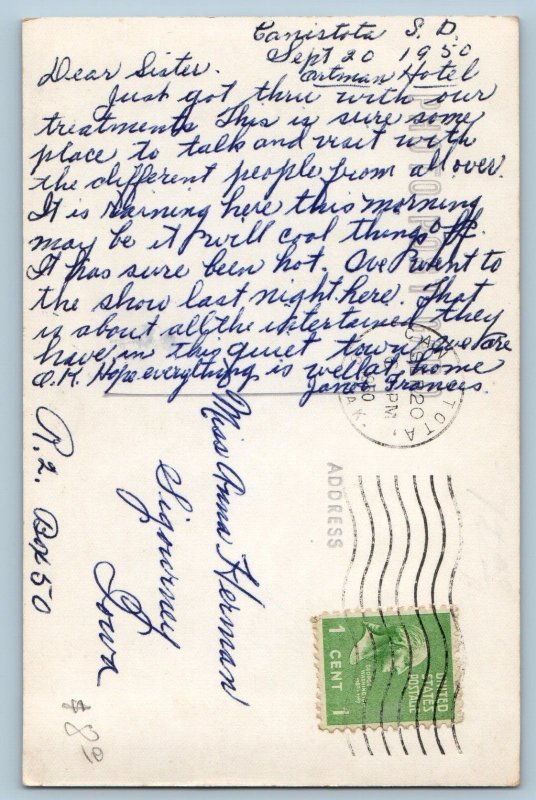 Canistota S. D.
Sept 20 1950
Ortman Hotel
Dear Sister.
Just got thru with our
treatments This is sure some
place to talk and visit with
the different people from all over.
It is raining here this morning
may be it will cool things off.
It has sure been hot. We went to
the show last night here. That
is about all the intertained they
have in this quiet town. We are
O.K. Hope everything is well at home
Frances.
R. 2. Box 50
Miss Anna Herman
Sigourney
Iowa
ADDRESS
SEP
20
PM
1950
1 CENT 1
UNITED
STATES
POSTAGE
GEORGE
WASHINGTON
$8